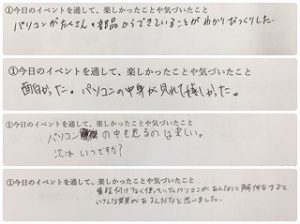 ①今日のイベントを通して、楽しかったことや気づいたこと
パソコンがたくさんの部品からできていることがわかりびっくりした。
①今日のイベントを通して、楽しかったことや気づいたこと
面白かった。パソコンの中身が見れて嬉しかった。
①今日のイベントを通して、楽しかったことや気づいたこと
パソコンの中を見るのは楽しい。
次はいつですか？
①今日のイベントを通して、楽しかったことや気づいたこと
普段何気なく使っていたパソコンがあんなに解体をすると、
いろんな発見があるんだなと思いました。